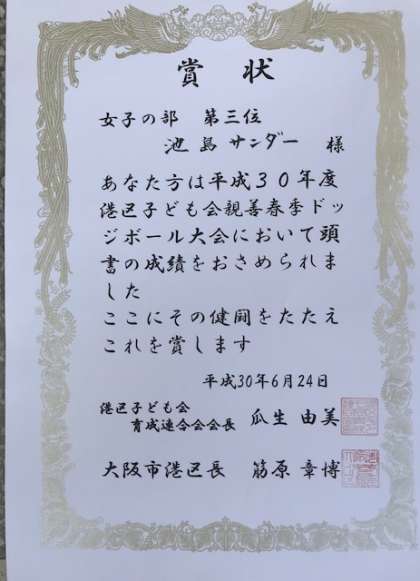 賞状
女子の部 第三位
池島サンダー 様
あなた方は平成30年度
港区子ども会親善春季ドッ
ジボール大会において頭
書の成績をおさめられま
した
ここにその健闘をたたえ
これを賞します
平成30年6月24日
港区子ども会
育成連合会会長 瓜生 由美
大阪市港区長 筋原 章博